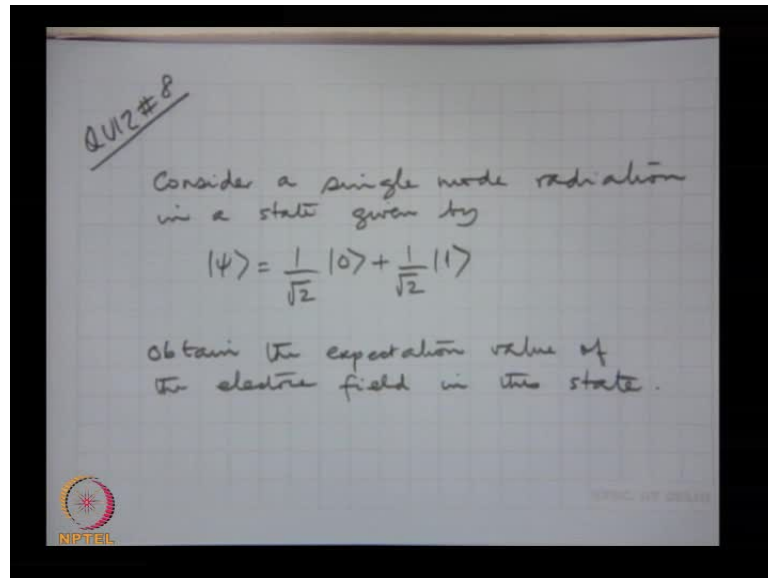 QUIZ # 8
Consider a single mode radiation
in a state given by
|ψ> = 1/√2 |0> + 1/√2 |1>
Obtain the expectation value of
the electric field in this state.
NPTEL